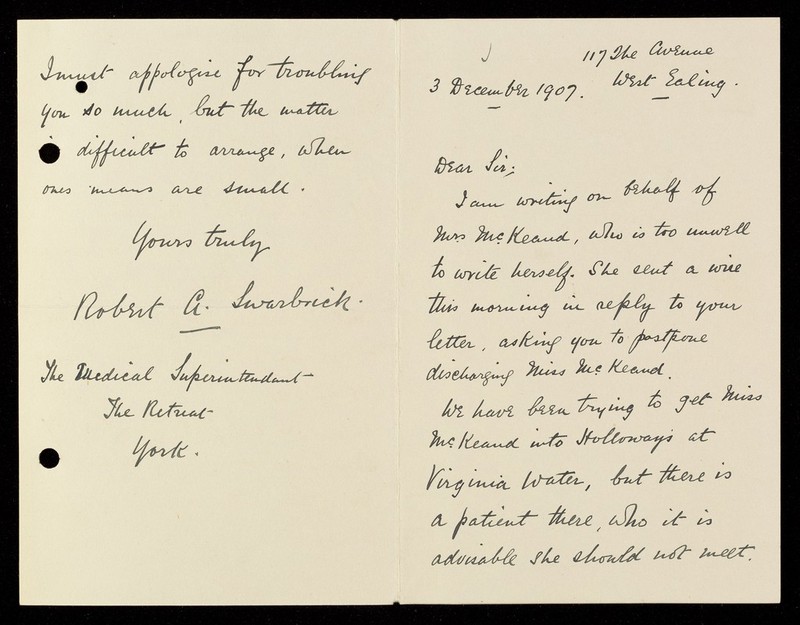 117 The Avenue
West Ealing.
3 December 1907.
Dear Sir;
I am writing on behalf of
Mrs McKeand, who is too unwell
to write herself. She sent a wire
this morning in reply to your
letter, asking you to postpone
discharging Miss McKeand.
We have been trying to get Miss
McKeand into Holloways at
Virginia Water, but there is
a patient there, who it is
advisable she should not meet.
I must appologise for troubling
you so much, but the matter
difficult to arrange, when
ones means are small.
Yours truly
Robert A. Swarbrick.
The Medical Superintendant
The Retreat
York.